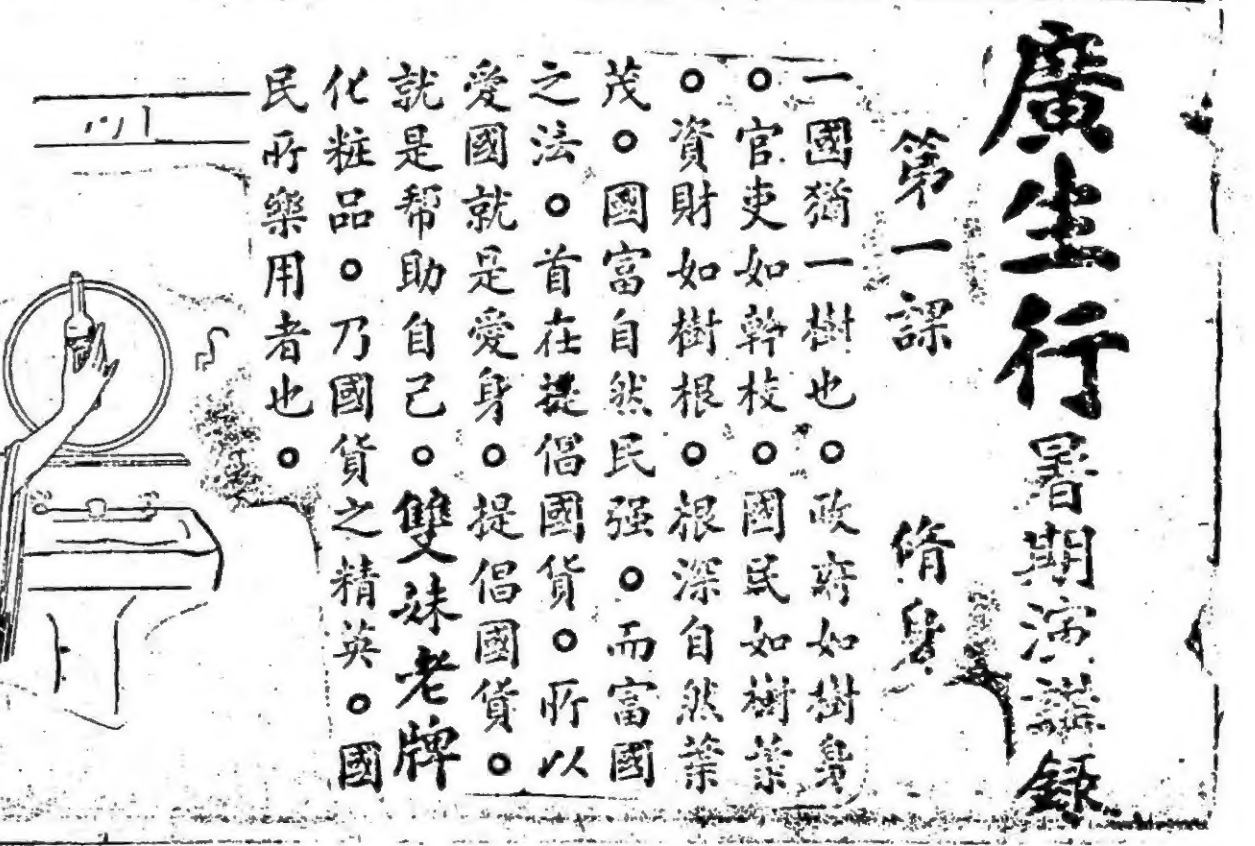 廣生行暑期演講錄
第一課 脩身
一國猶一樹也。政府如樹身
。官吏如幹枝。國民如樹葉
。資財如樹根。根深自然葉
茂。國富自然民强。而富國
之法。首在提倡國貨。所以
愛國就是愛身。提倡國貨。
就是帮助自己。雙妹老牌
化粧品。乃國貨之精英。國
民所樂用者也。